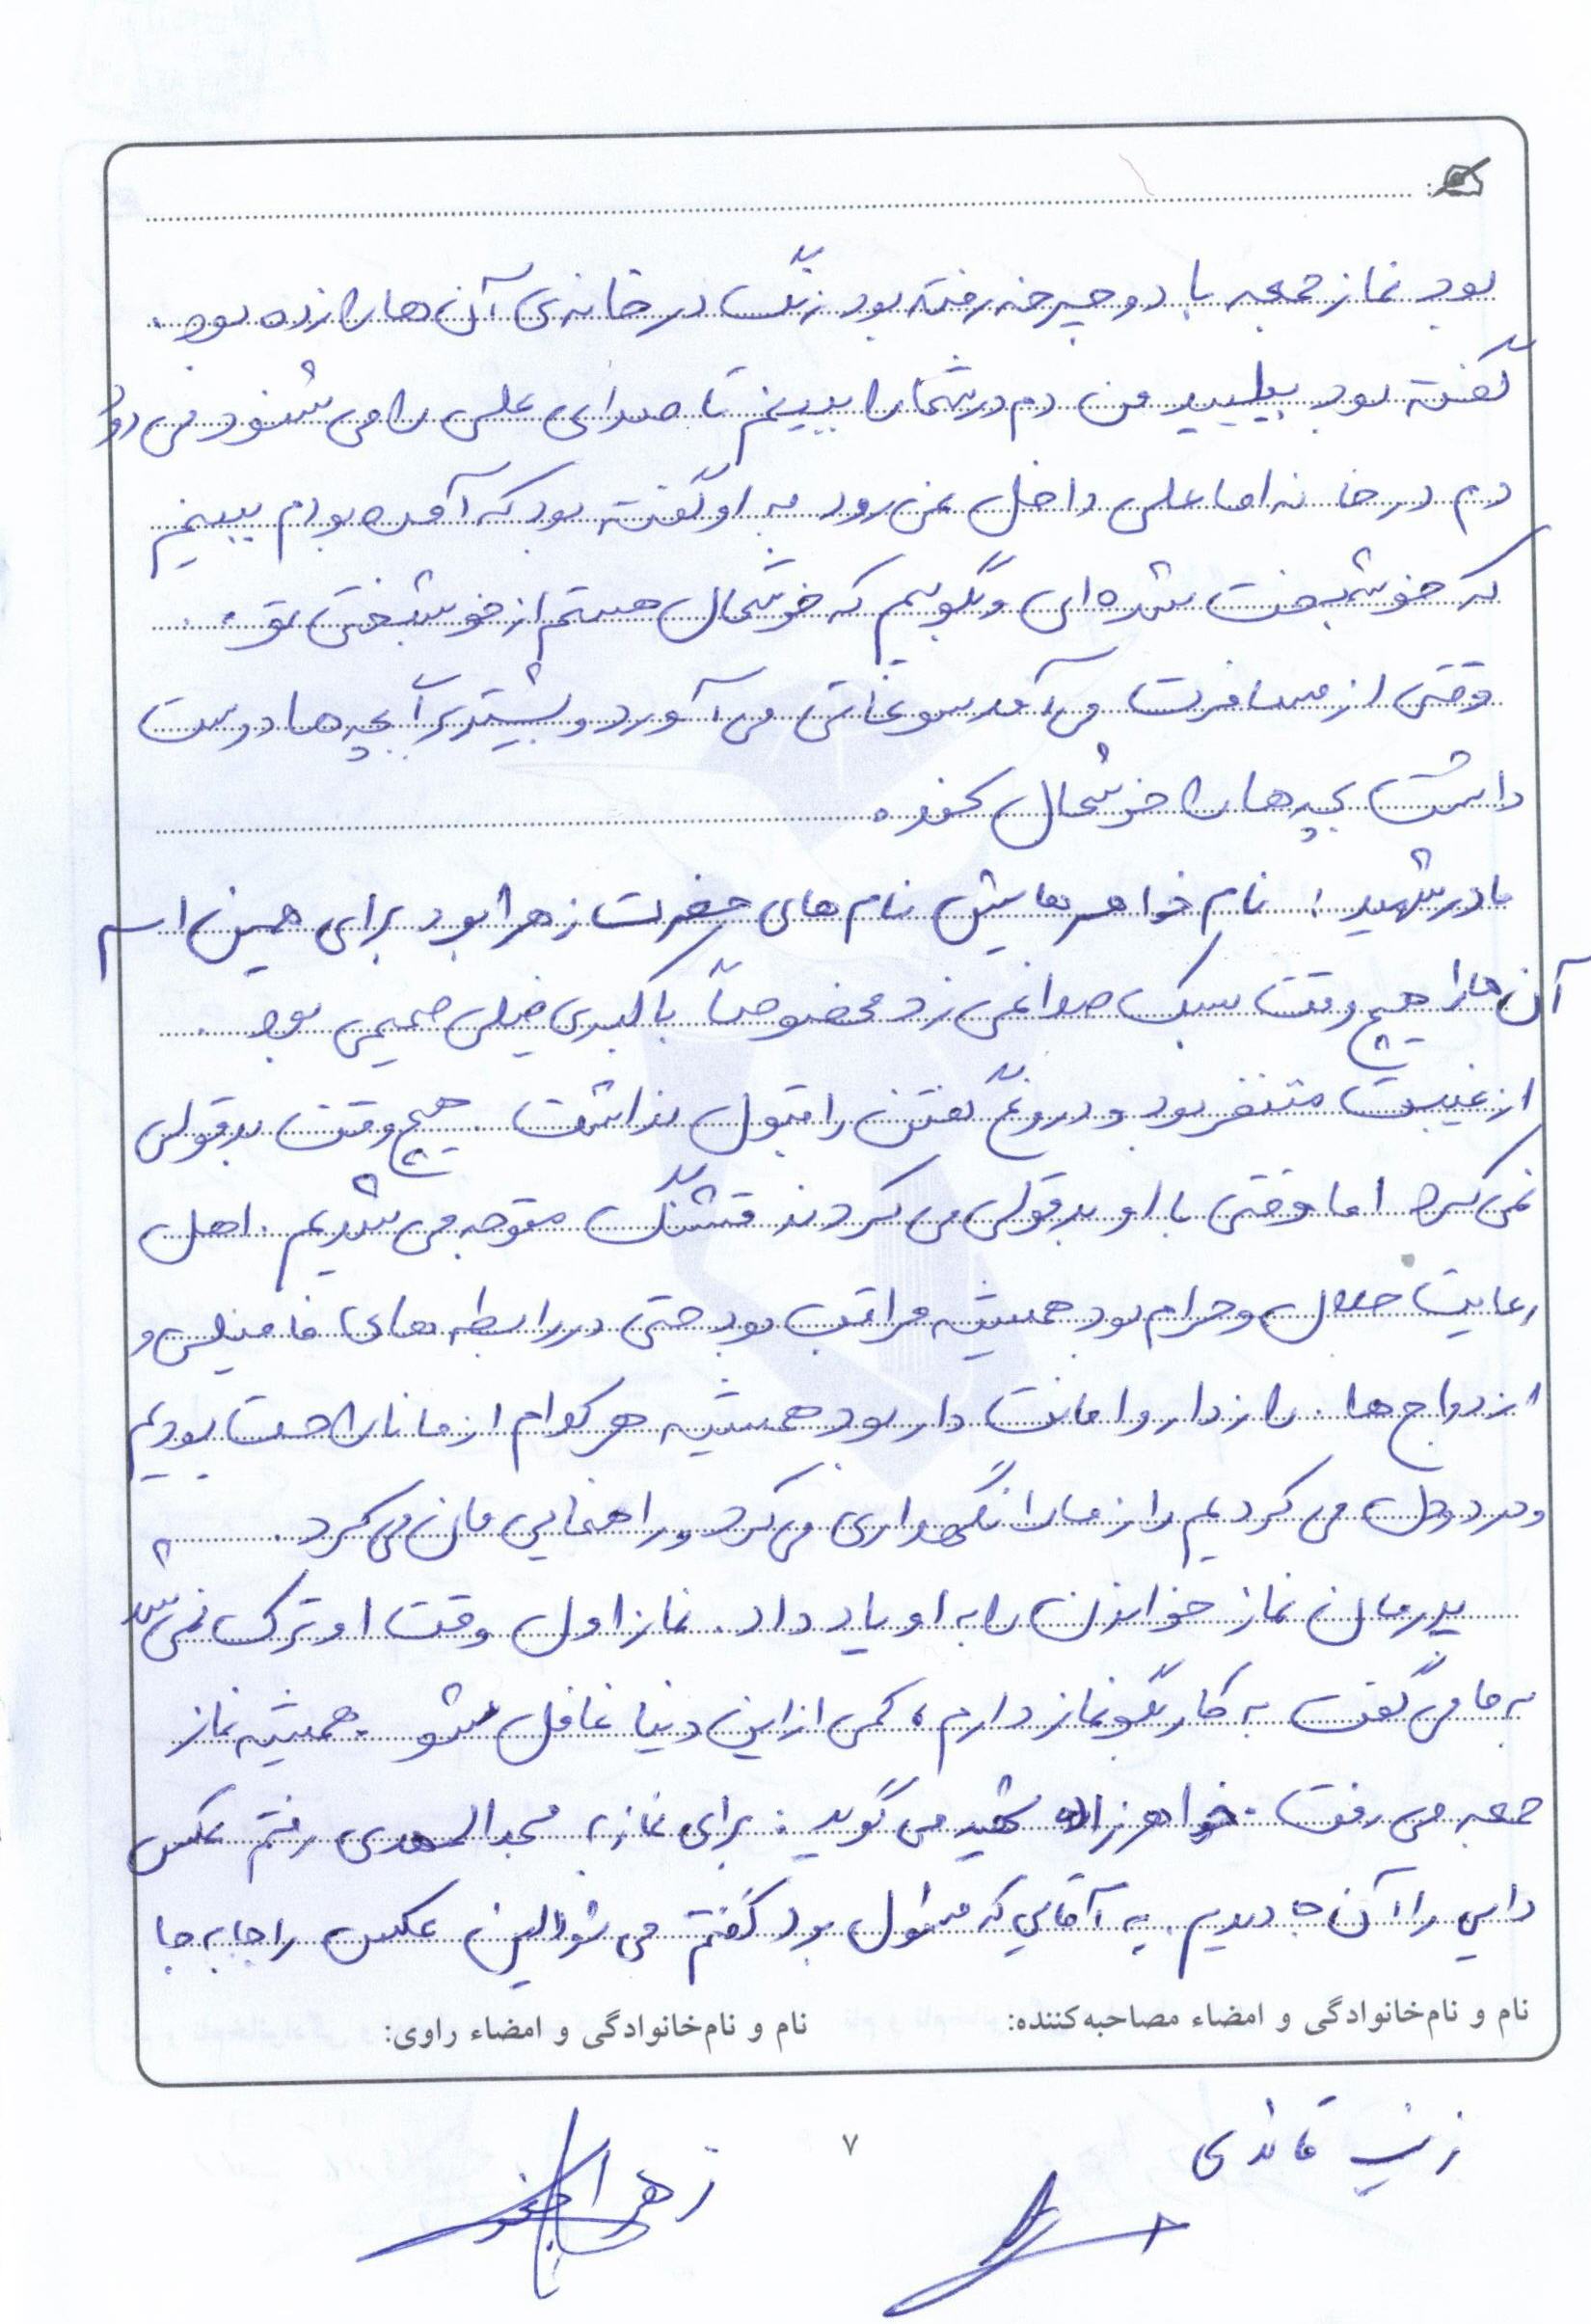 بود نماز جمعه با دوچرخه رفته بود زنگ در خانه‌ی آن ها را زده بود.
گفته بود بیایید من دم در شما را ببینم تا صدای علی را می شنود می رود
دم در خانه اما علی داخل نمی رود به او گفته بود که آمده بودم ببینم
که خوشبخت شده ای و بگویم که خوشحال هستم از خوشبختی تو.
وقتی از مسافرت می آمد سوغاتی می آورد و بیشتر برا بچه ها دوست
داشت بچه ها را خوشحال کند.
مادر شهید: نام خواهرهایش نام های حضرت زهرا بود برای همین اسم
آن ها را هیچ وقت سبک صدا نمی زد مخصوصاً با کبری خیلی صمیمی بود.
از غیبت متنفر بود و دروغ گفتن را قبول نداشت. هیچ وقت بدقولی
نمی کرد اما وقتی با او بدقولی می کردند قشنگ متوجه می شدیم. اهل
رعایت حلال و حرام بود همیشه مراقب بود حتی در رابطه های فامیلی و
ازدواج ها. رازدار و امانت دار بود همیشه هر کدام از ما ناراحت بودیم
و درد و دل می کردیم راز ما را نگهداری می کرد و راهنمایی مان می کرد.
پدرمان نماز خواندن را به او یاد داد. نماز اول وقت او ترک نمی شد
به ما می گفت به کار بگو نماز دارم، کمی از این دنیا غافل شو. همیشه نماز
جمعه می رفت. خواهرزاده شهید می گوید: برای نماز به مسجد المهدی رفتم عکس
دایی را آن جا دیدیم. به آقایی که مسئول بود گفتم می شود این عکس را جابه جا
نام و نام‌خانوادگی و امضاء مصاحبه‌کننده:
نام و نام‌خانوادگی و امضاء راوی:
زینب قائدی
زهرا
۷